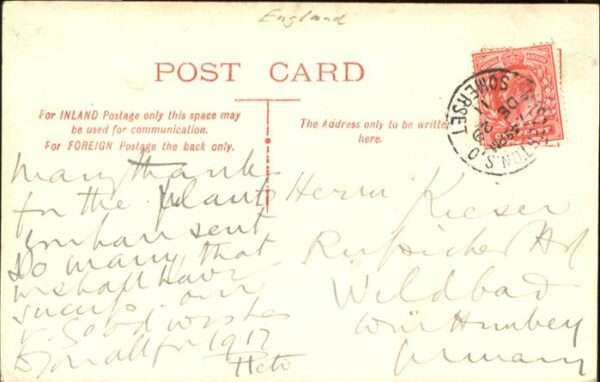 England
POST CARD
For INLAND Postage only this space may
be used for communication.
For FOREIGN Postage the back only.
The Address only to be written
here.
SOMERSET
Many thanks
for the plants
you have sent
so many that
we shall have
success
Good wishes
to you all for 1912
Herrn Kieser
Hof
Wildbad
Württemberg
Germany